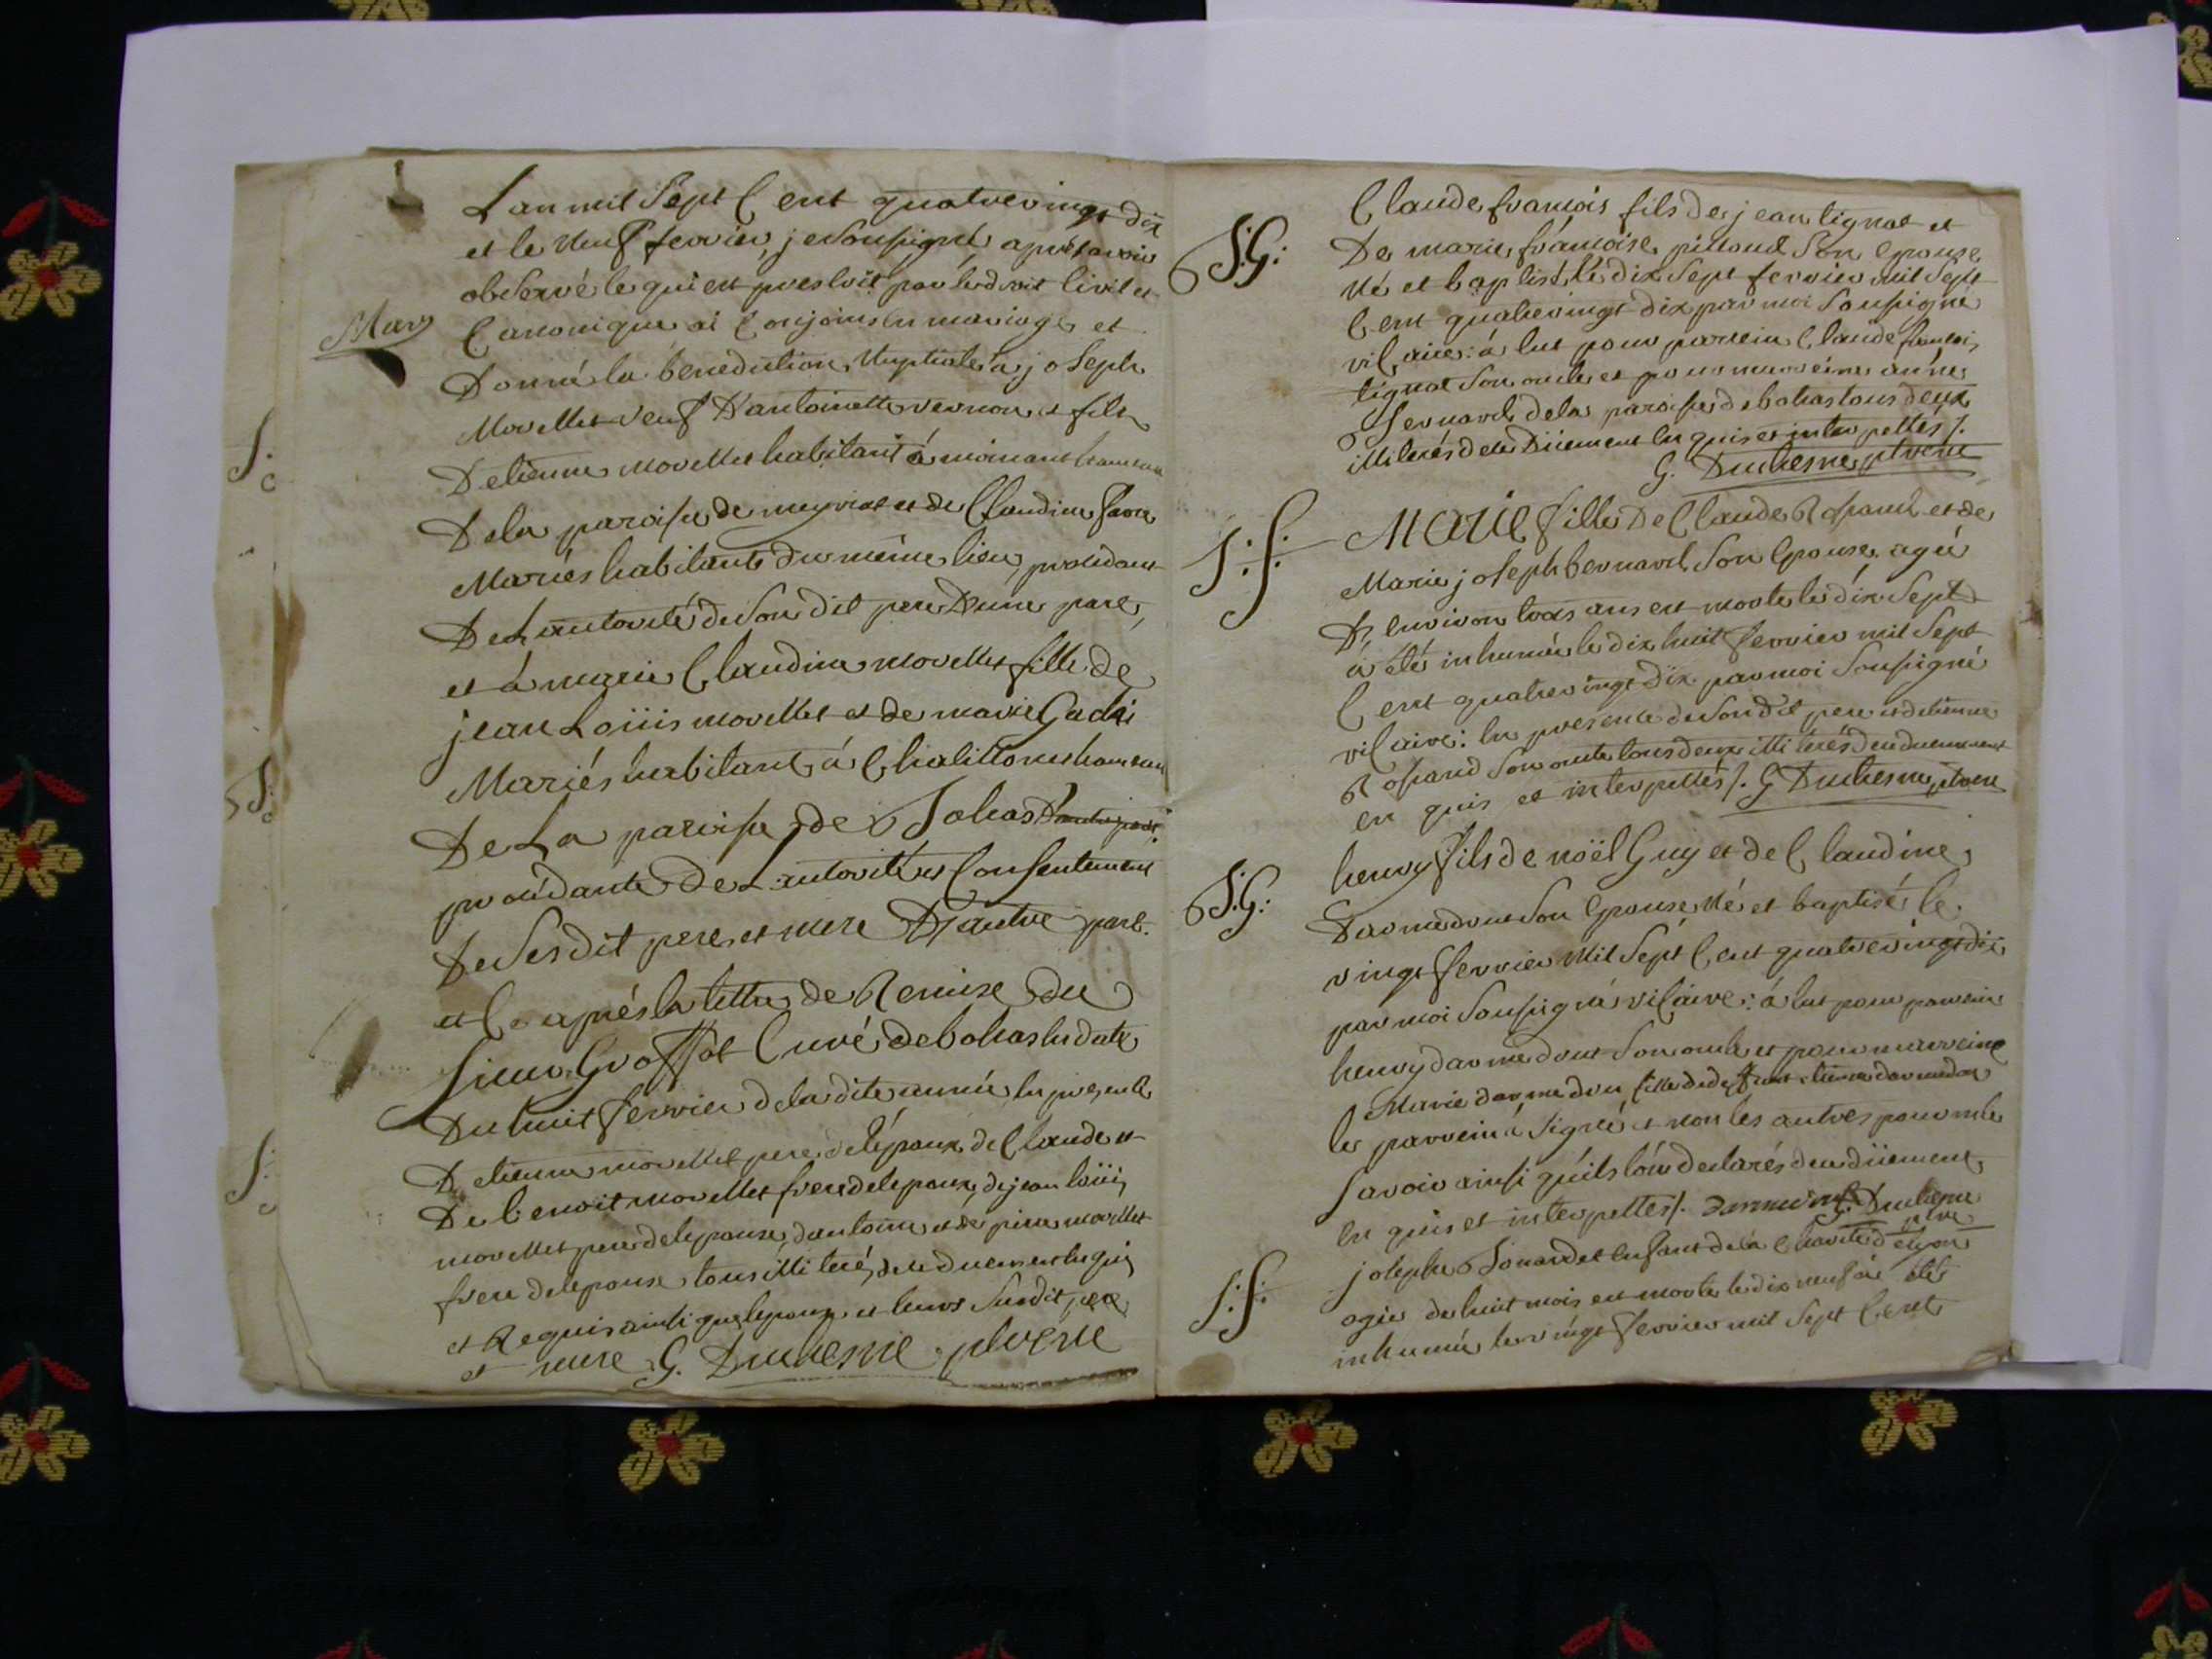 Lan mil Sept Cent quatrevingt dix
et le neuf fevrier, je soussigné, apres avoir
observé ce qui est prescrit par le droit civil et
Canonique ai conjoins en mariage et
Mar
Donné la bénédiction Nuptiale à joseph
Morellet veuf D'antoinette vernon et fils
D'etienne morellet habitant á moinant hameau
De la paroisse de meyriat et de Claudine favre
Mariés habitants du même lieu, procédant
De L'autorité de son dit pere D'une part,
et á marie Claudine morellet fille de
jean Loüis morellet et de marie Gudri
Mariés habitant á Challitonu hameau
De La paroisse de Bohas D'autre part
procédante de L'autorité et Consentement
de ses dit pere et mere D'autre part.
et Ce après la lettre de Remise du
Sieur Groffat Curé de bohas en date
Du huit fevrier de la dite année en presence
D'etienne morellet pere de l'époux, de Claude et
De benoit morellet frere de lepoux, de jean loüis
morellet pere de lepouse, d'antoine et de pierre morellet
frere de lepouse tous illiterés, de ce duement enquis
et Requis ainsi que lepoux et leurs susdit pere
et mere G. Duchesne ptre vre
S.
c
S.
c
S.
c
S.G: Claude francois fils de jean tignat et
De marie francoise pittond son epouse
Né et baptisé le dix sept fevrier mil Sept
Cent quatrevingt dix par moi soussigné
vicaire: á eut pour parrein Claude francois
tignat son oncle et pour marreine anne
bernard de la paroisse de bohas tous deux
illiterés de ce Düement enquis et interpellés /.
G. Duchesne ptre vre
S.f. Marie fille de Claude Rossand et de
Marie joseph bernard son epouse, agée
D'environ trois ans est morte le dix Sept
á été inhumée le dix huit fevrier mil Sept
Cent quatrevingt dix par moi soussigné
vicaire: en presence de son dit pere et d'etienne
Rossand son oncle tous deux illiterés de ce duement
en quis et interpellés /. G Duchesne ptre vre
S.G: henry fils de noël Guy et de Claudine
Darmedont son epouse, Né et baptisé le
vingt fevrier Mil Sept Cent quatrevingt dix
par moi soussigné vicaire: á eut pour parrein
henry darmedont son oncle et pour marreine
Marie darmedon fille de defunt etienne darmedon
le parrein á signé et non les autres pour ne le
savoir ainsi qu'ils l'on déclarés de ce düement
en quis et interpellés /. G. Duchesne
ptre vre
S.f. josephe Bonardet enfant de la Charité de lyon
agée de huit mois est morte le dix neuf á été
inhumée le vingt fevrier mil Sept Cent